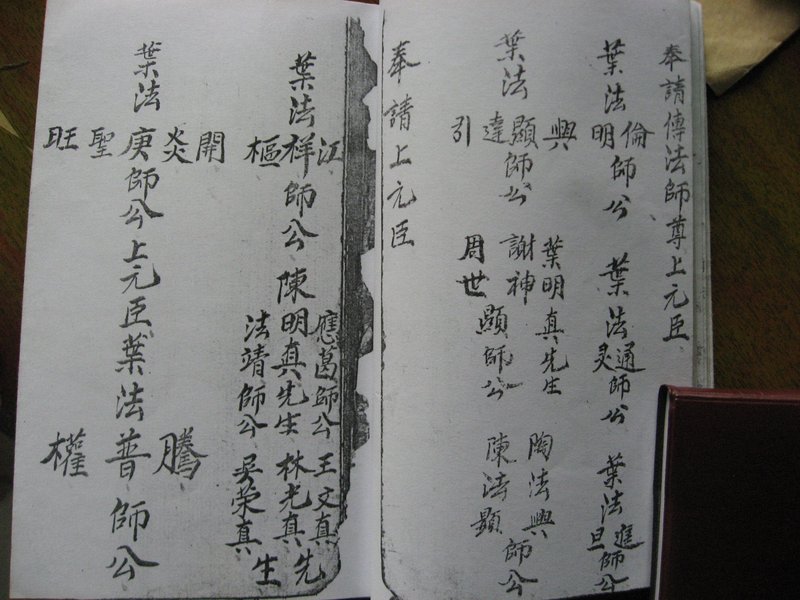 奉請傳法師尊上元臣
葉法倫明師公 葉法通灵師公 葉法進旦師公
葉法興顯達引師公 葉明真先生 謝神周世顯師公 陶法興陳法顯師公
奉請上元臣
葉法江祥樞師公 陳應葛師公明真先生法靖師公 王文真林光真吴荣真先生
葉法開炎庚聖旺師公上元臣葉法騰普權師公